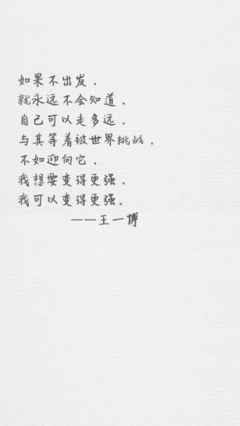 如果不出发，
就永远不会知道，
自己可以走多远，
与其等着被世界挑战，
不如迎向它，
我想要变得更强，
我可以变得更强。
——王一博